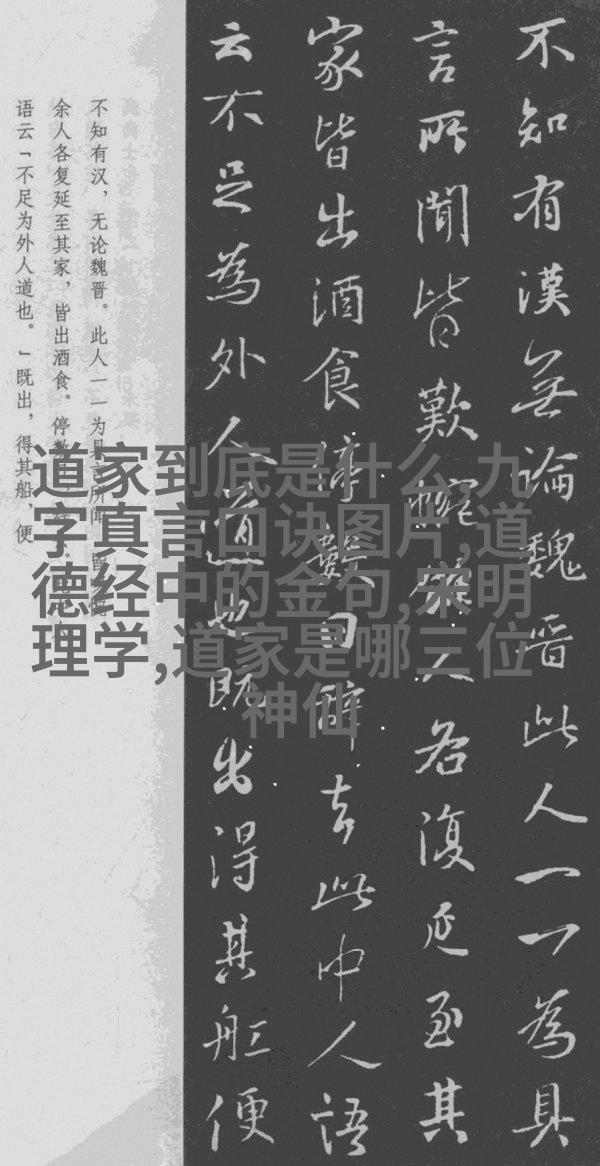 不知有漢無論魏晋此人一一為具
言所聞皆歎惋餘人各復延至其
家皆出酒食停數日辭去此中人語
云不足為外人道也既出得其舡便
不知有汉，无论魏晋。此人一一为具言所闻，皆
余人各复延至其家，皆出酒食。停数
语云「不足为外人道也。」既出，得其船，便
道家到底是什么,九
字真言口诀图片,道
德经中的金句,宋明
理学,道家是哪三位
神仙